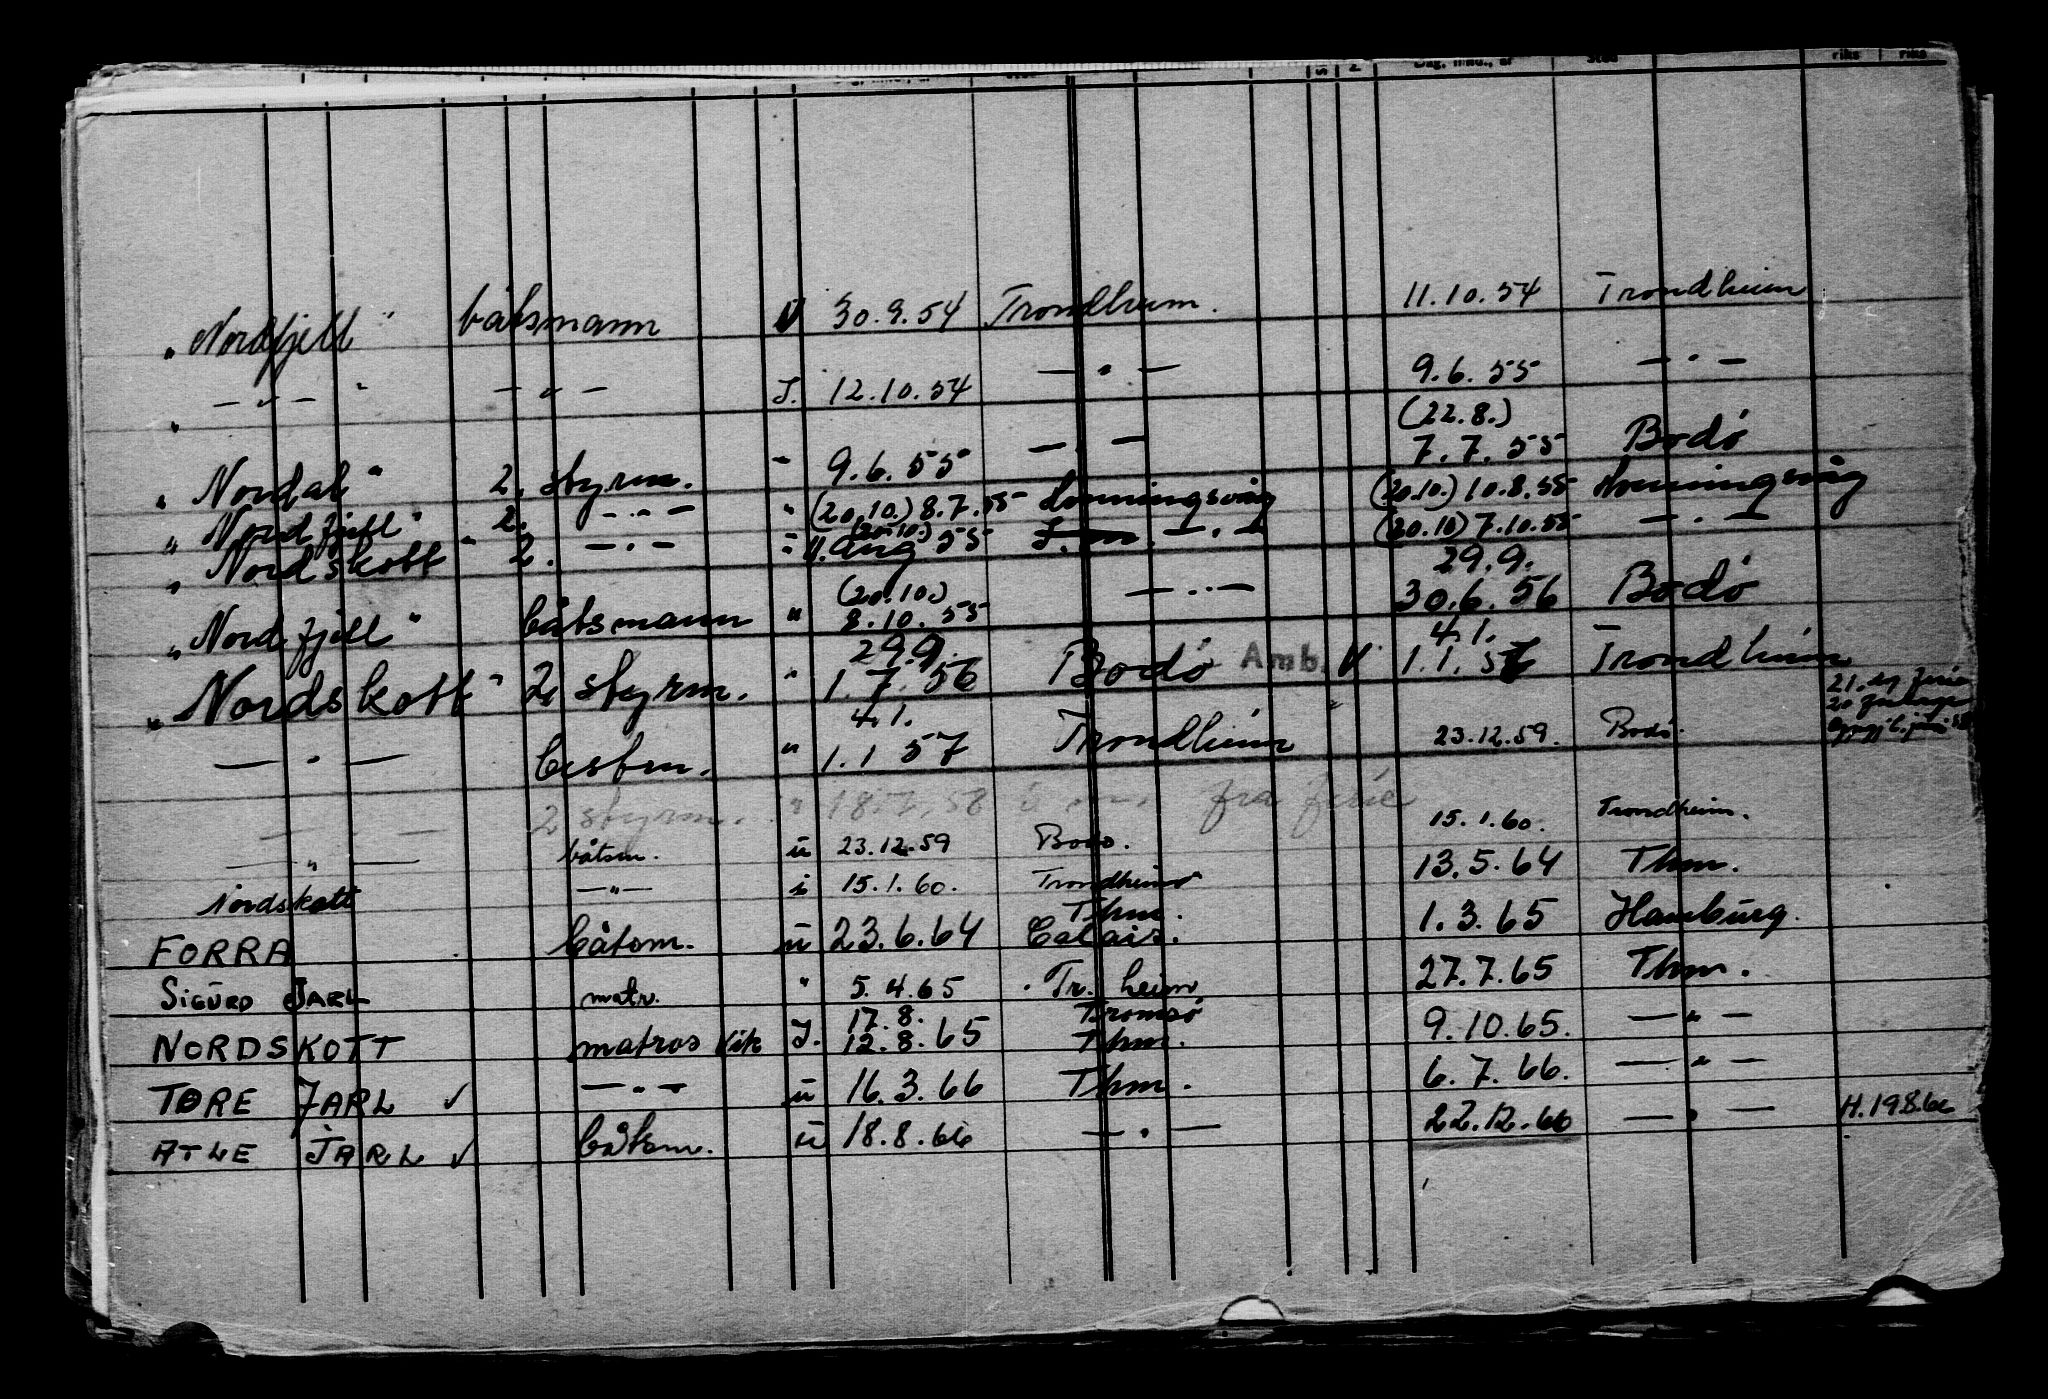 Dag, mnd., år Sted riks riks
"Nordfjell" båtsmann U 30.9.54 Trondheim. 11.10.54 Trondheim
" — " — " — " — I. 12.10.54 — " — 9.6.55 — " —
(22.8.)
"Nordal" 2. styrm. " 9.6.55 — " — 7.7.55 Bodö
"Nordfjell" 2. — " — " (20.10.) 8.7.55 Honningsvåg (20.10.) 10.8.55 Honningsvåg
(20.10.)
"Nordskott" 2. — " — " 11. aug 55 — " — (20.10) 7.10.55 — " —
(20.10.) 29.9.
"Nordfjell" båtsmann " 8.10.55 — " — 30.6.56 Bodö
29.9. 4.1.
"Nordskott" 2 styrm. " 1.7.56 Bodö Amb. U 1.1.57 Trondheim
4.1. 21. dg ferie
— " — bestm. " 1.1.57 Trondheim 23.12.59. Bodö.
— " — 2 styrm. " 18.7.58 fra ferie
— " — båtsm. u 23.12.59 Bodö. 15.1.60. Trondheim.
Nordskott — " — i 15.1.60. Trondheim 13.5.64 Thm.
Thm.
FORRA båtsm. u 23.6.64 Calais. 1.3.65 Hamburg.
SIGURD JARL matr. " 5.4.65 Tr.heim 27.7.65 Thm.
17.8. Tromsö
NORDSKOTT matros vik I. 12.8.65 Thm. 9.10.65. — " —
TORE JARL ✓ — " — u 16.3.66 Thm. 6.7.66. — " —
ATLE JARL ✓ båtsm. u 18.8.66 — " — 22.12.66 — " — H.19.8.66